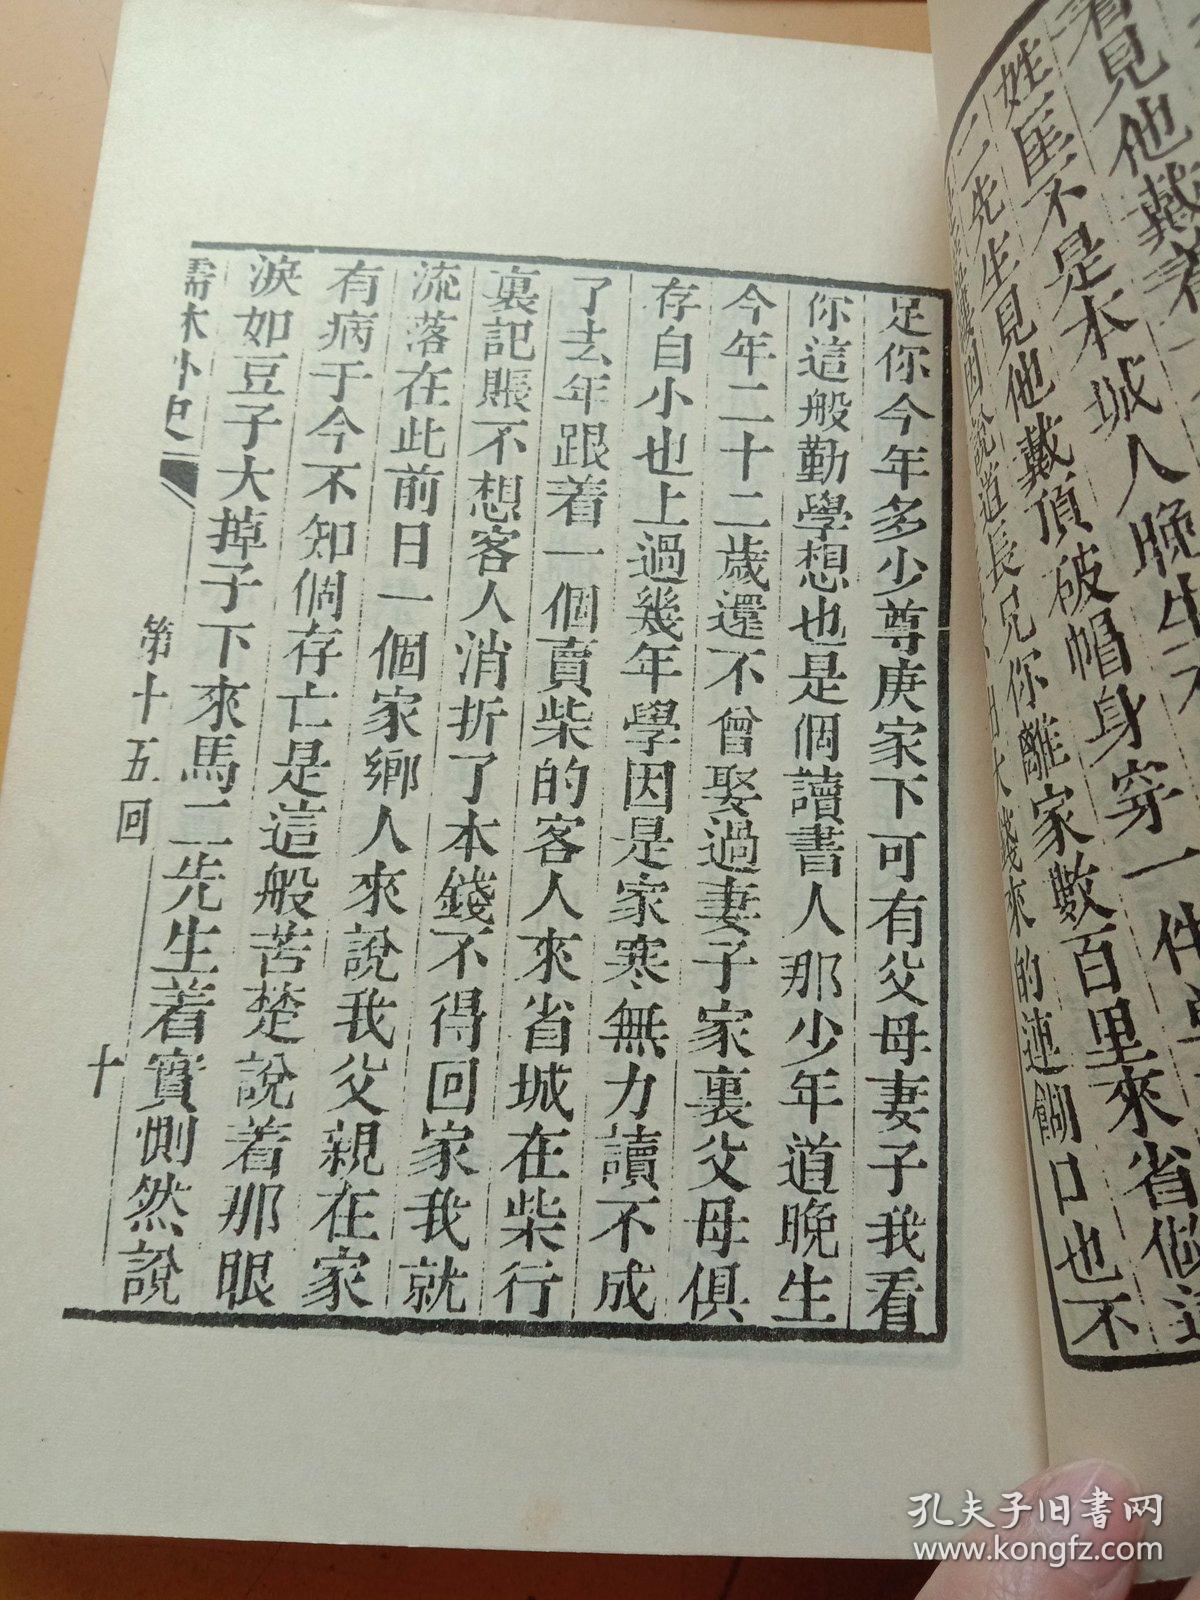 看見他戴着
姓匡不是本城人晚生不
二先生見他戴頂破帽身穿一件單
因說道長兄你離家數百里來省做這
大錢來的連餬口也不
足你今年多少尊庚家下可有父母妻子我看
你這般勤學想也是個讀書人那少年道晚生
今年二十二歲還不曾娶過妻子家裏父母俱
存自小也上過幾年學因是家寒無力讀不成
了去年跟着一個賣柴的客人來省城在柴行
裏記賬不想客人消折了本錢不得回家我就
流落在此前日一個家鄉人來說我父親在家
有病于今不知個存亡是這般苦楚說着那眼
淚如豆子大掉子下來馬二先生着實惻然說
儒林外史 第十五回 十
孔夫子旧书网
www.kongfz.com